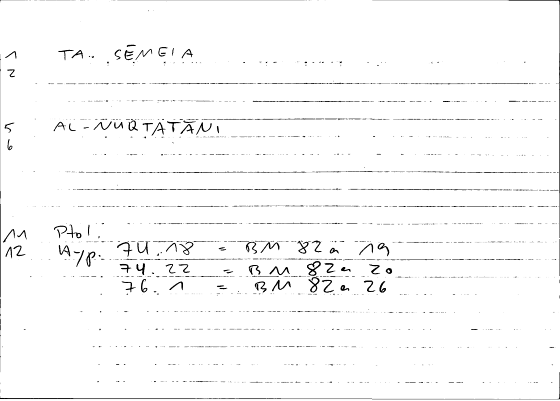 1 TA.. SĒMEIA
2
5 AL-NUQTATĀNI
6
11 Ptol.
12 Hyp. 74.18 = BM 82a 19
74.22 = BM 82a 20
76.1 = BM 82a 26